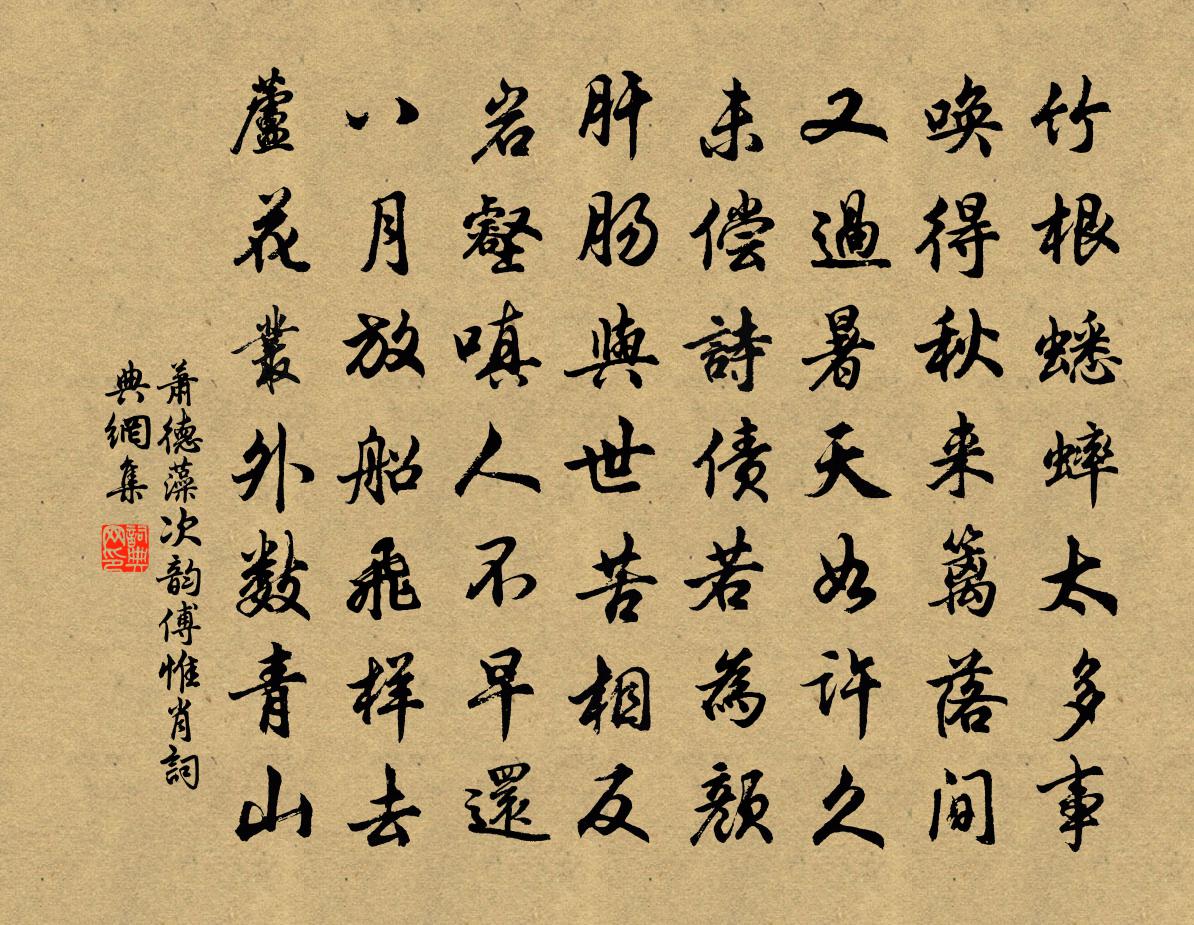 竹根蟋蟀太多事
唤得秋来篱落间
又過暑天如許久
未偿詩债若為颜
肝肠與世苦相反
岩壑嗔人不早還
八月放船飛样去
蘆花叢外数青山
萧德藻次韵傅惟肖詞
典網集
詞典
网印